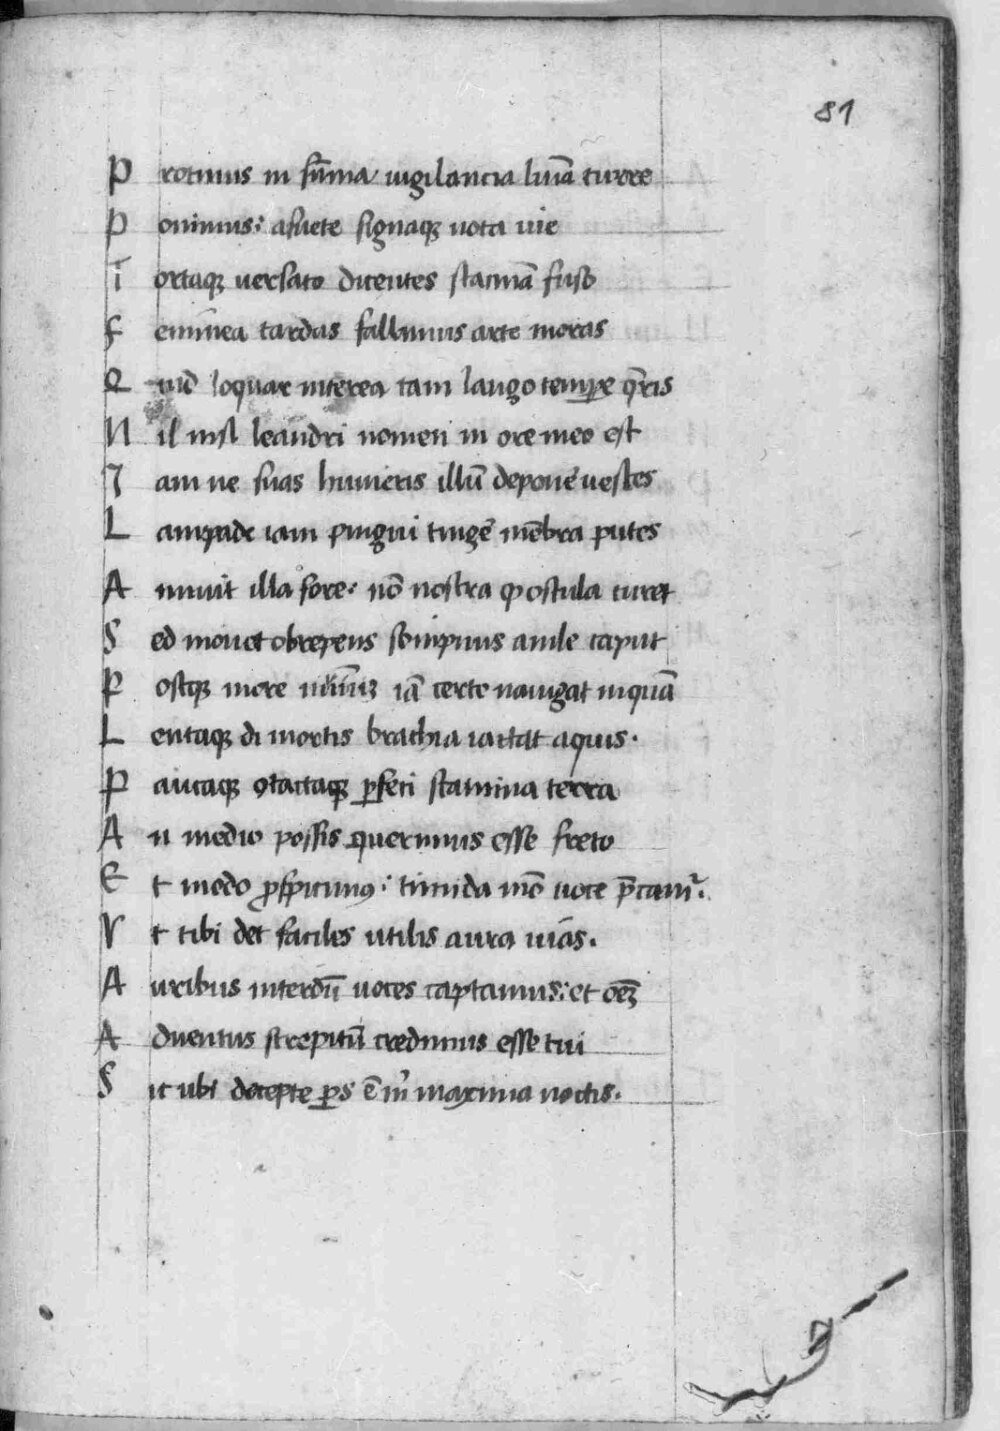 81
Protinus in sūma vigilancia luīa turre
Ponimus: asuete signaqꝫ nota vie
Tortaqꝫ versato ducentes stamīa fuso
Femīnea tardas fallimus arte moras
Quid loquar interea tam longo tempore q̄ris
Nil nisi leandri nomen in ore meo est
Iam ne suas humeris illū deponē vestes
Lampade iam pingui tingē mēbra putes
Annuit illa fere: nō nostra ꝙ oscula curet
Sed movet obrepens sompnus anile caput
Postqꝫ more iā certe navigat inquā
Lentaqꝫ di mortis brachia iactat aquis.
Paucaqꝫ ꝯtactaqꝫ ꝑfeci stamina terra
An medio possis querimus esse freto
Et modo ꝓspicimꝰ: timida mō voce p̄camur.
Vt tibi det faciles utilis aura vias.
Auribus interdū voces captamus: et oēꝫ
Adventus strepitū credimus esse tui
Sic ubi decepte ꝑs ē m maxima noctis.